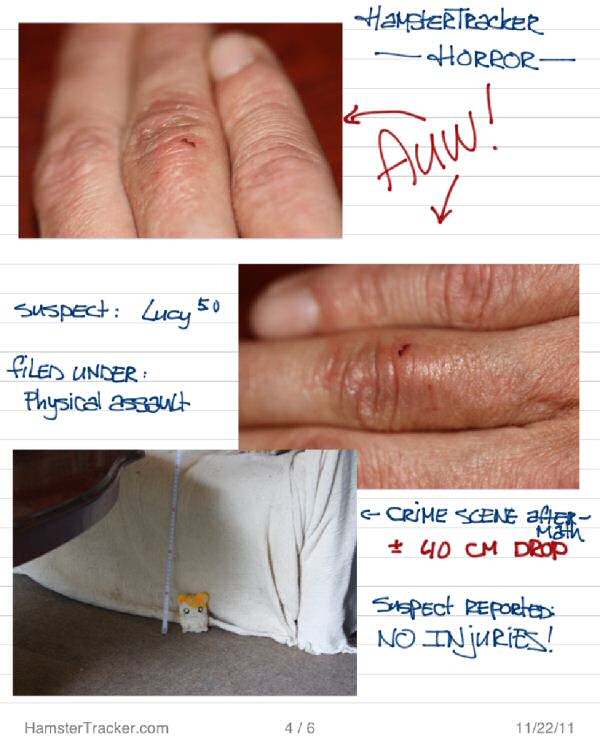 HAMSTERTRACKER
— HORROR —
AUW!
SUSPECT: LUCY 50
FILED UNDER:
Physical assault
← CRIME SCENE AFTER-
MATH
± 40 CM DROP
SUSPECT REPORTED:
NO INJURIES!
HamsterTracker.com 4 / 6 11/22/11